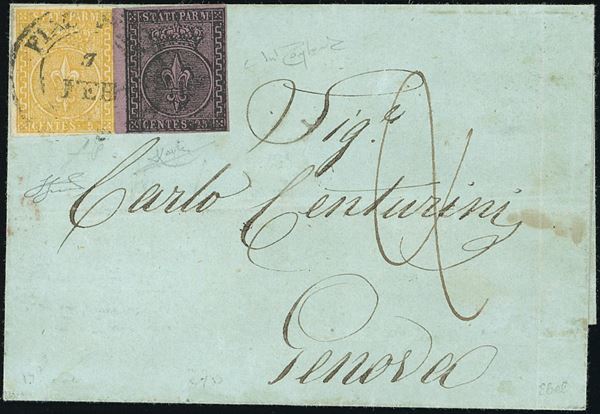 STATI PARM. STATI PARM.
7
FEB
CENTES. 5 CENTES. 25
Sig.r
Carlo Centurini
Genova